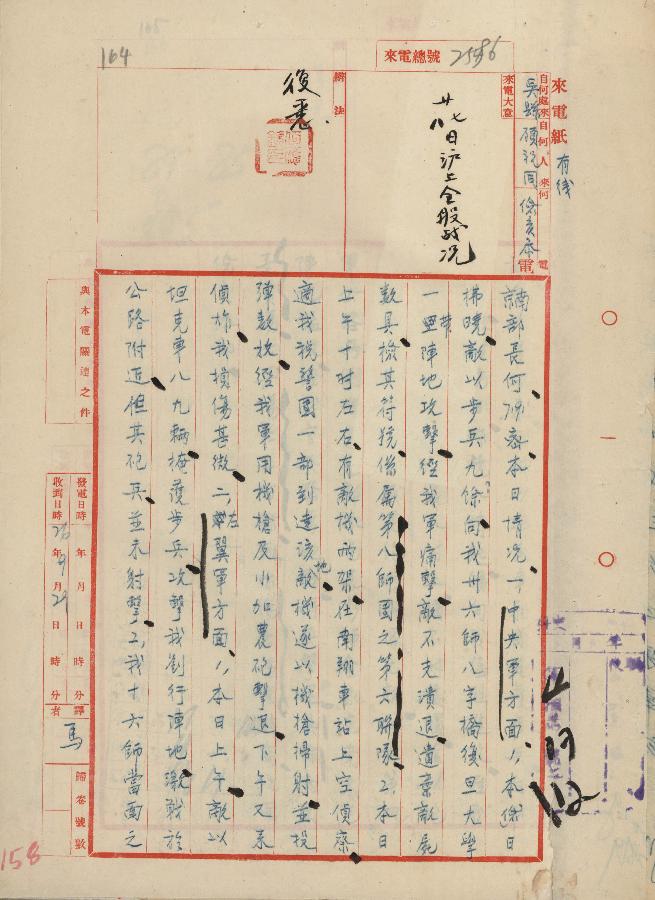 來電紙 有线
自何處來自何人來何電
吳縣顧祝同 俭亥叅 電
來電大意
廿七八日沪上全般战况
來電總號 2586
擬辦法
復悉
164
南京部長何 密本日情况一、中央軍方面1、本俭日
拂曉敵以步兵九餘向我卅六師八字橋復旦大學
一帶陣地攻擊經我軍痛擊敵不支潰退遺棄敵屍
数具檢其符號係屬第八師團之第六聯隊2、本日
上午十时左右有敵機兩架在南翔車站上空偵察
適我税警團一部到達該地敵機遂以機槍掃射並投
彈数枚經我軍用機槍及小加農砲擊退下午又来
偵炸我損傷甚微二、左翼軍方面1、本日上午敵以
坦克車八九輛掩護步兵攻擊我劉行陣地激戰於
公路附近但其砲兵並未射擊2、我十六師當面之
與本電關連之件
發電日時 年 月 日 時 分
收到日時 26年9月29日 時 分
譯者 馬
歸卷號數
158